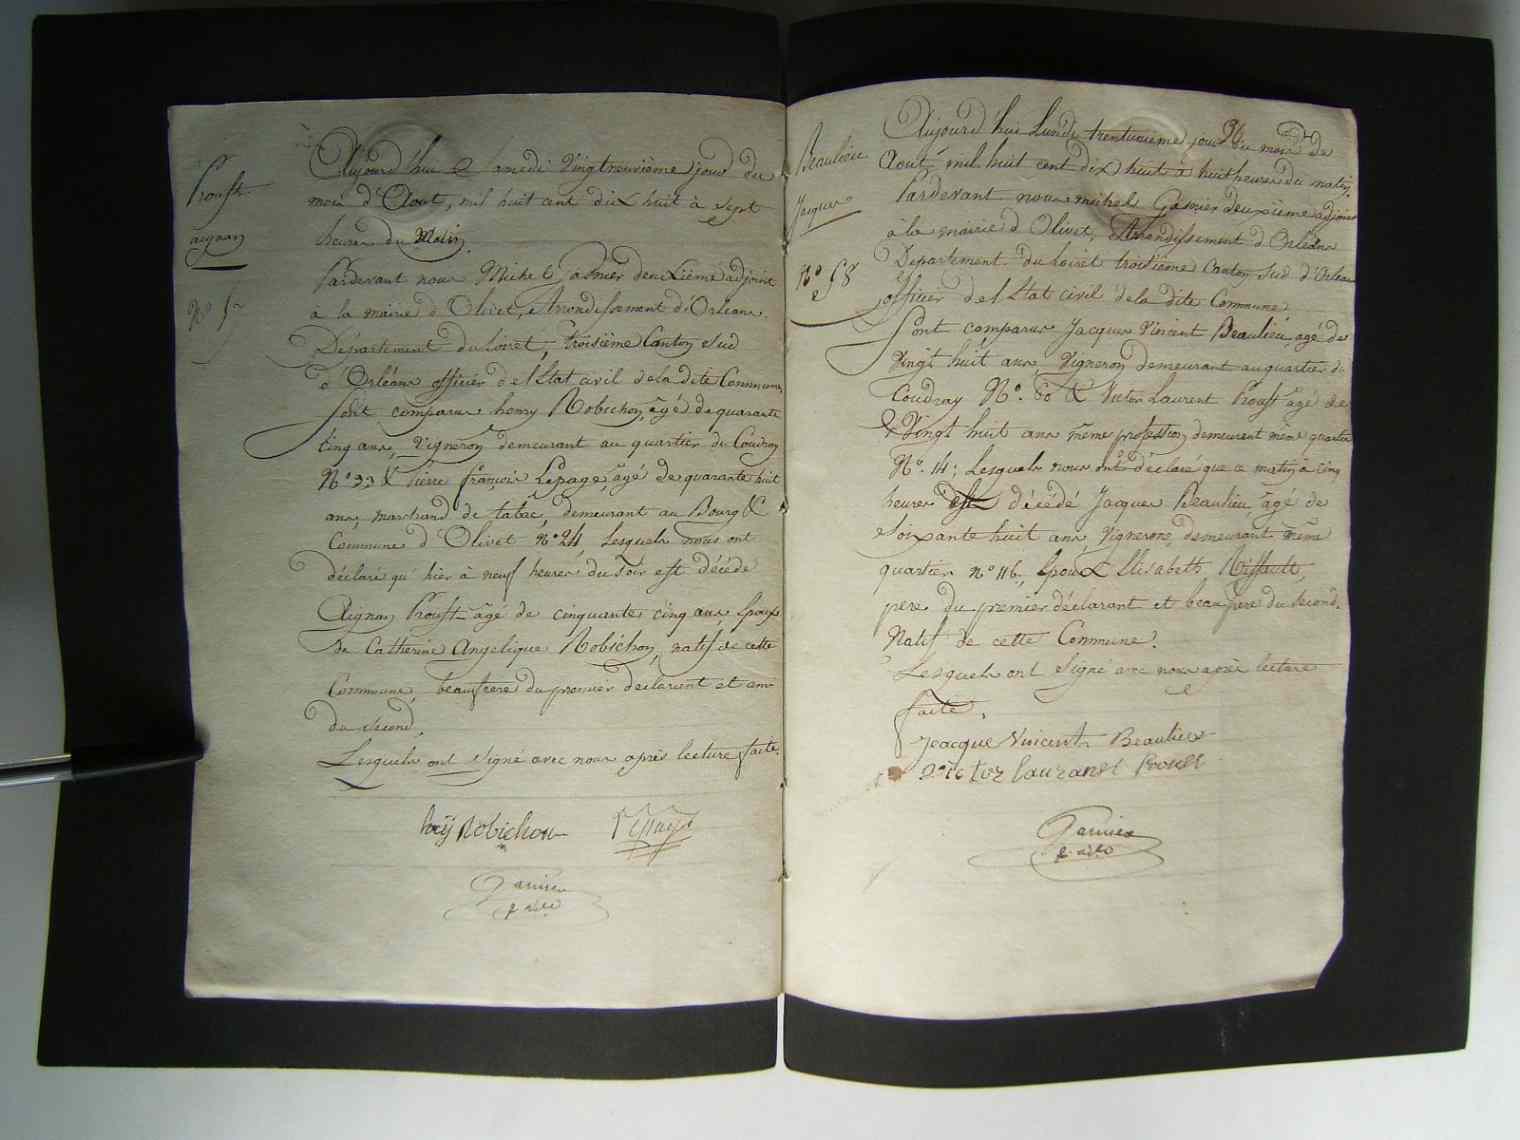 Proust
aignan
N° 57
Aujourd'hui Samedi Vingtneuvième jour du
mois d'Aout, mil huit cent dix huit à Sept
heures du Matin.
Pardevant nous Michel Garnier deuxième adjoint
à la mairie d'Olivet, Arrondissement d'Orléans
Département du Loiret, troisième Canton Sud
d'Orléans officier de l'Etat civil de la dite Commune,
Sont comparus henry Robichon, agé de quarante
cinq ans, Vigneron demeurant au quartier du Coudray
N° 33 & Pierre françois Lepage, agé de quarante huit
ans, marchand de tabac, demeurant au Bourg &
Commune d'Olivet N° 24 Lesquels nous ont
déclaré qu'hier à neuf heures du soir est décédé
Aignan Proust agé de cinquante cinq ans, Epoux
de Catherine Angelique Robichon, natif de cette
Commune, beaufrere du premier déclarant et ami
du Second,
Lesquels ont Signé avec nous après lecture faite.
hry Robichon Lepage
Garnier
Beaulieu
Jacques
N° 58
36
Aujourd'hui Lundi trenteunieme jour du mois de
Aout, mil huit cent dix huit à huit heures du matin,
Pardevant nous michel Garnier deuxième adjoint
à la mairie d'Olivet, Arrondissement d'Orléans
Departement du Loiret troisième Canton Sud d'Orléans
officier de l'Etat civil de la dite Commune
Sont comparus Jacques Vincent Beaulieu, agé de
Vingt huit ans, Vigneron demeurant au quartier du
Coudray N°. 60 & Victor Laurent Proust agé de
Vingt huit ans même profession, demeurant même quartier
N°. 14; Lesquels nous ont déclaré que ce matin à cinq
heures est décédé Jacques Beaulieu, agé de
Soixante huit ans, Vigneron, demeurant même
quartier n° 46, Epoux Elisabeth Riffault,
pere du premier déclarant et beau pere du Second.
Natif de cette Commune.
Lesquels ont Signé avec nous après lecture
faite.
Jeacque Vincent Beaulieu
Victor lauranst Proust
Garnier